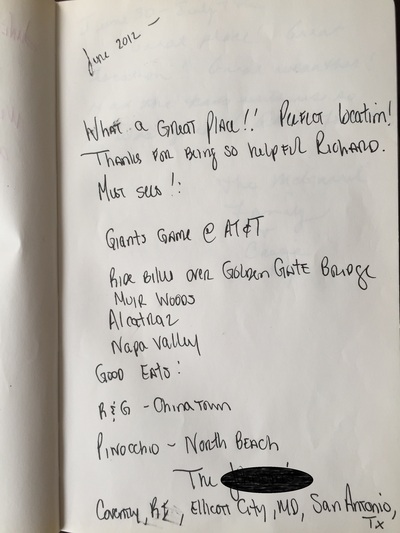 June 2012 –
What a Great Place!! Perfect location!
Thanks for being so helpful Richard.
Must sees!:
Giants Game @ AT&T
Ride Bikes over Golden Gate Bridge
Muir Woods
Alcatraz
Napa Valley
Good Eats:
R&G - China Town
Pinocchio - North Beach
The
Coventry, RI, Ellicott City, MD, San Antonio,
Tx